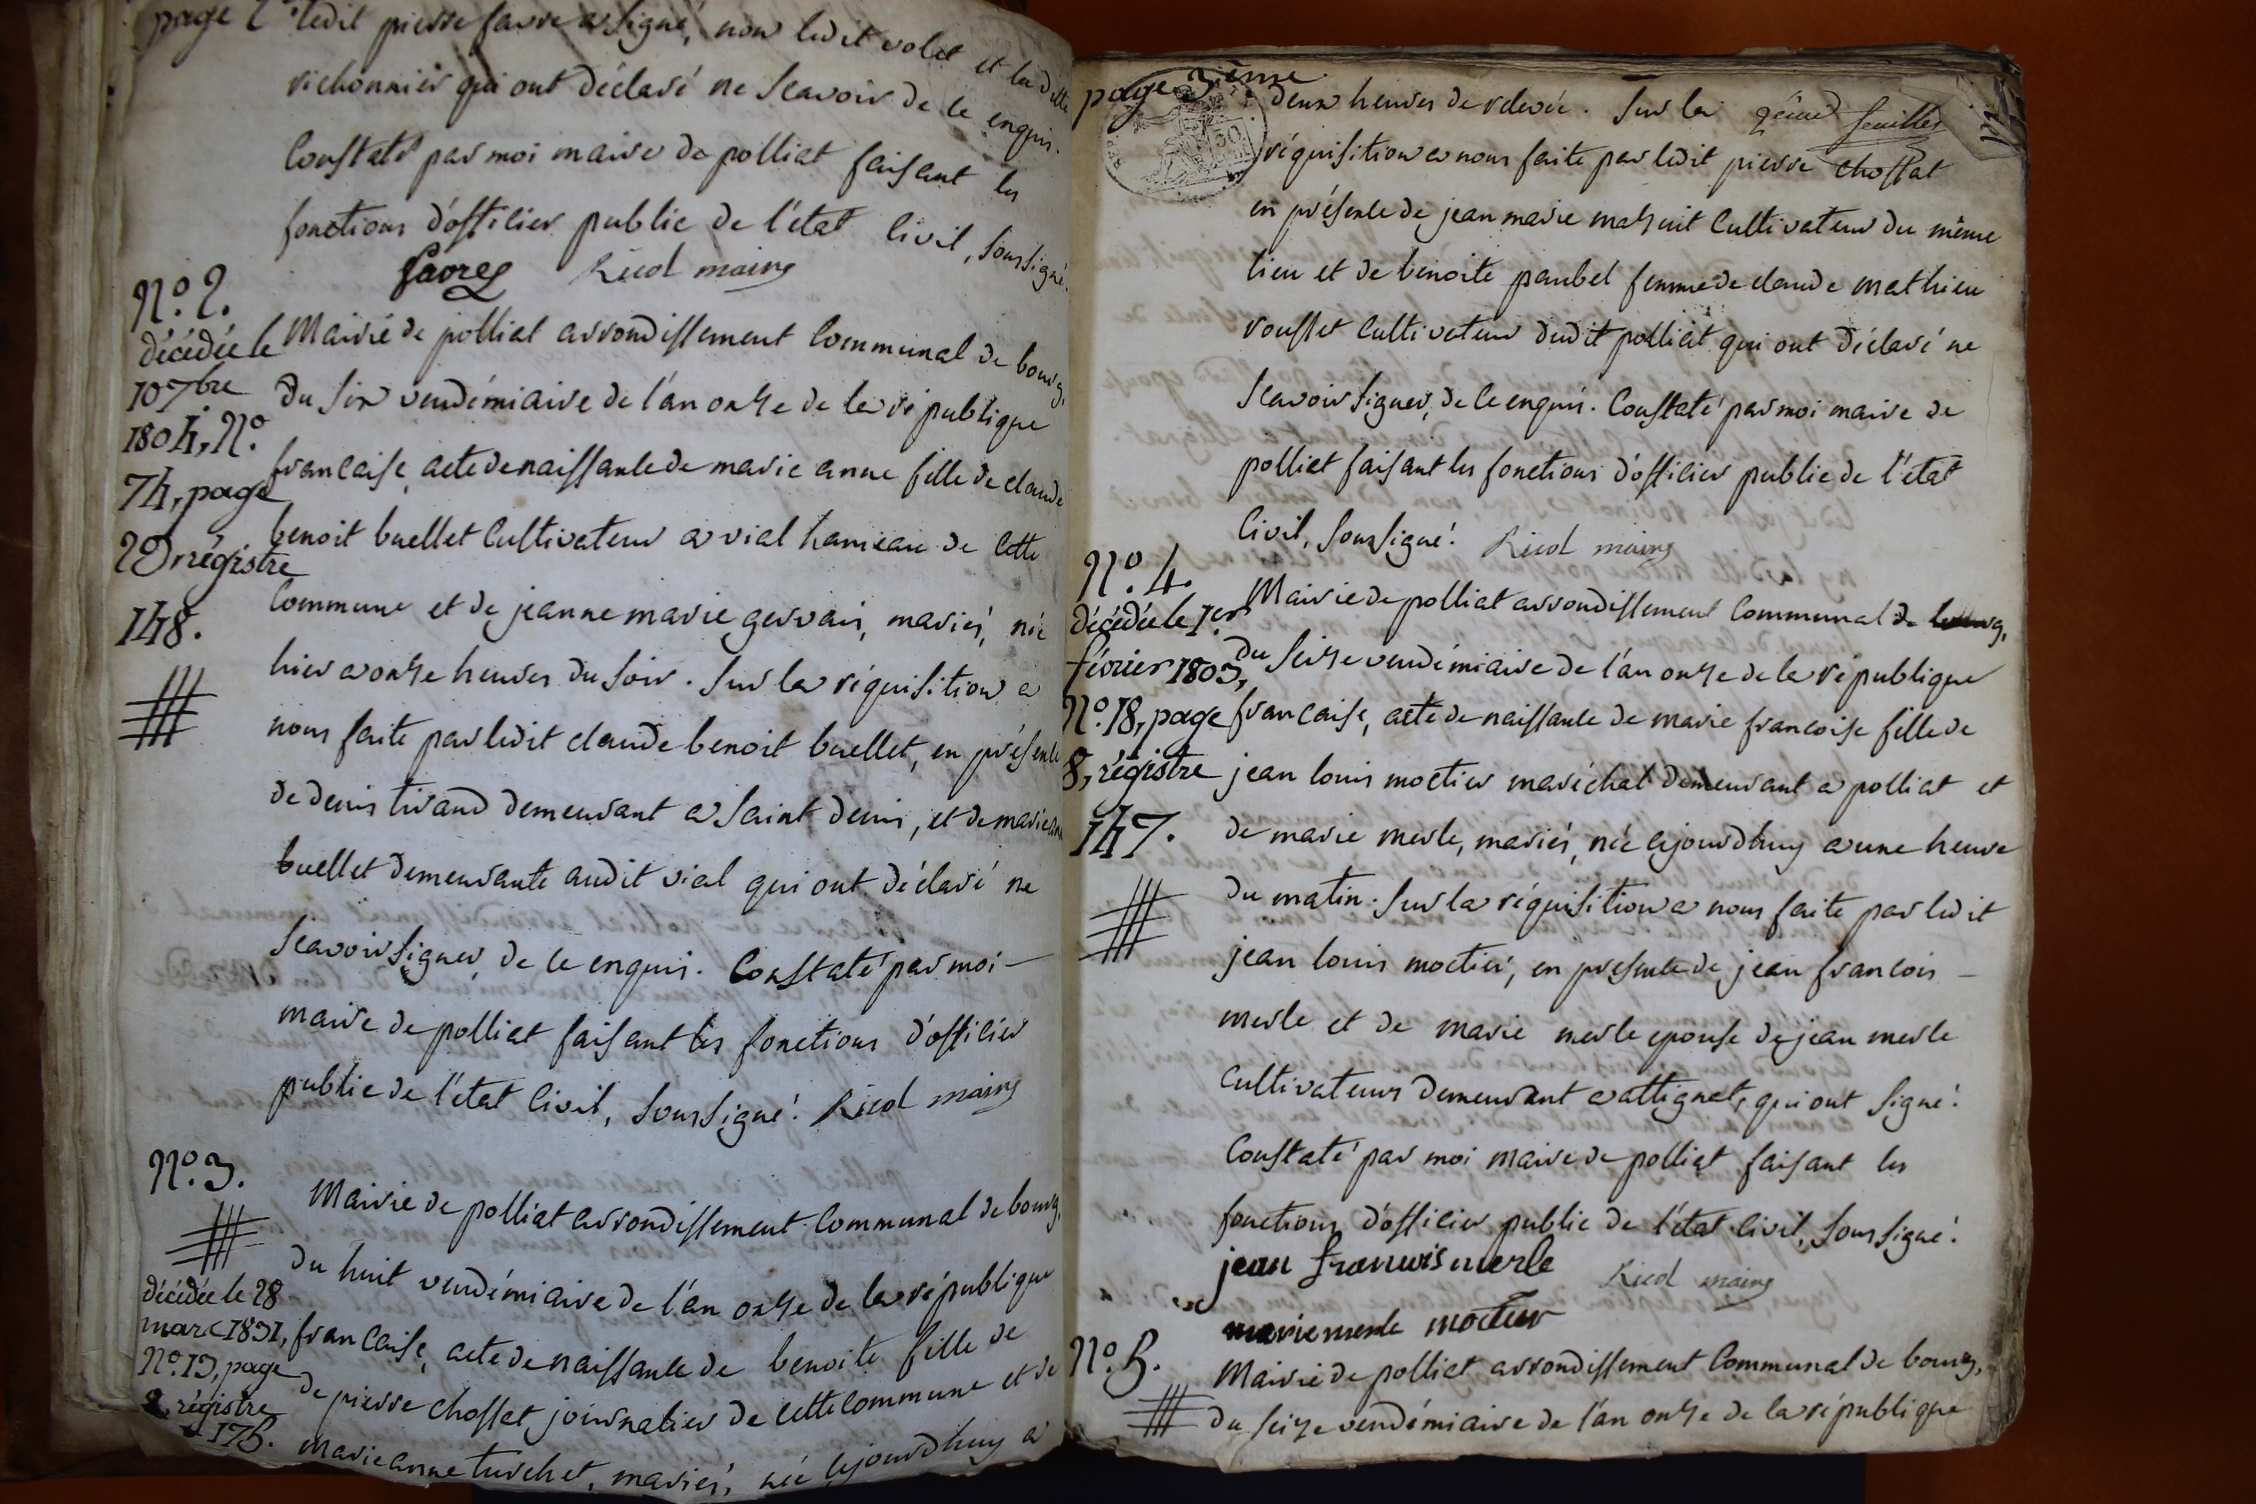 page 2 ledit pierre favre a signé, non ledit volet et laditte
richonnier qui ont déclaré ne scavoir de ce enquis.
Constaté par moi maire de polliat faisant les
fonctions d'officier public de l'état civil, soussigné.
favre Ricol maire
N.o 2.
décédée le
10 7bre
1804, N.o
74, page
20 régistre
148.
Mairie de polliat arrondissement communal de bourg,
Du six vendémiaire de l'an onze de la république
francaise, acte de naissance de marie anne fille de claude
benoit buellet cultivateur a vial hameau de cette
commune et de jeanne marie gervais, mariés, née
hier a onze heures du soir. Sur la réquisition a
nous faite par ledit claude benoit buellet, en présence
de denis tirand demeurant a saint denis, et de marie anne
buellet demeurante audit vial qui ont déclaré ne
scavoir signer, de ce enquis. Constaté par moi
maire de polliat faisant les fonctions d'officier
public de l'état civil, soussigné. Ricol maire
N.o 3.
décédée le 28
mars 1831,
N.o 13, page
régistre
175.
Mairie de polliat arrondissement communal de bourg,
du huit vendémiaire de l'an onze de la république
francaise, acte de naissance de benoite fille de
de pierre chossat journalier de cette commune et de
marie anne turchet, mariés, née ajourdhuy a
page 3ième
2ème feuillet
deux heures de relevée. Sur la
réquisition a nous faite par ledit pierre chossat
en présence de jean marie mahuit cultivateur du même
lieu et de benoite paubel femme de claude mathieu
rousset cultivateur dudit polliat qui ont déclaré ne
scavoir signer, de ce enquis. Constaté par moi maire de
polliat faisant les fonctions d'officier public de l'état
civil, soussigné. Ricol maire
N.o 4.
décédée le 1er
février 1803,
N.o 18, page
8, régistre
147.
Mairie de polliat arrondissement communal de bourg,
du seize vendémiaire de l'an onze de la république
francaise, acte de naissance de marie francoise fille de
jean louis moctier maréchal demeurant a polliat et
de marie merle, mariés, née ajourdhuy a une heure
du matin. Sur la réquisition a nous faite par ledit
jean louis moctier, en présence de jean francois
merle et de marie merle epouse de jean merle
cultivateurs demeurant a attignat, qui ont signé.
Constaté par moi maire de polliat faisant les
fonctions d'officier public de l'état civil, soussigné.
jean francois merle Ricol maire
marie merle moctier
N.o 5.
Mairie de polliat arrondissement communal de bourg,
du seize vendémiaire de l'an onze de la république